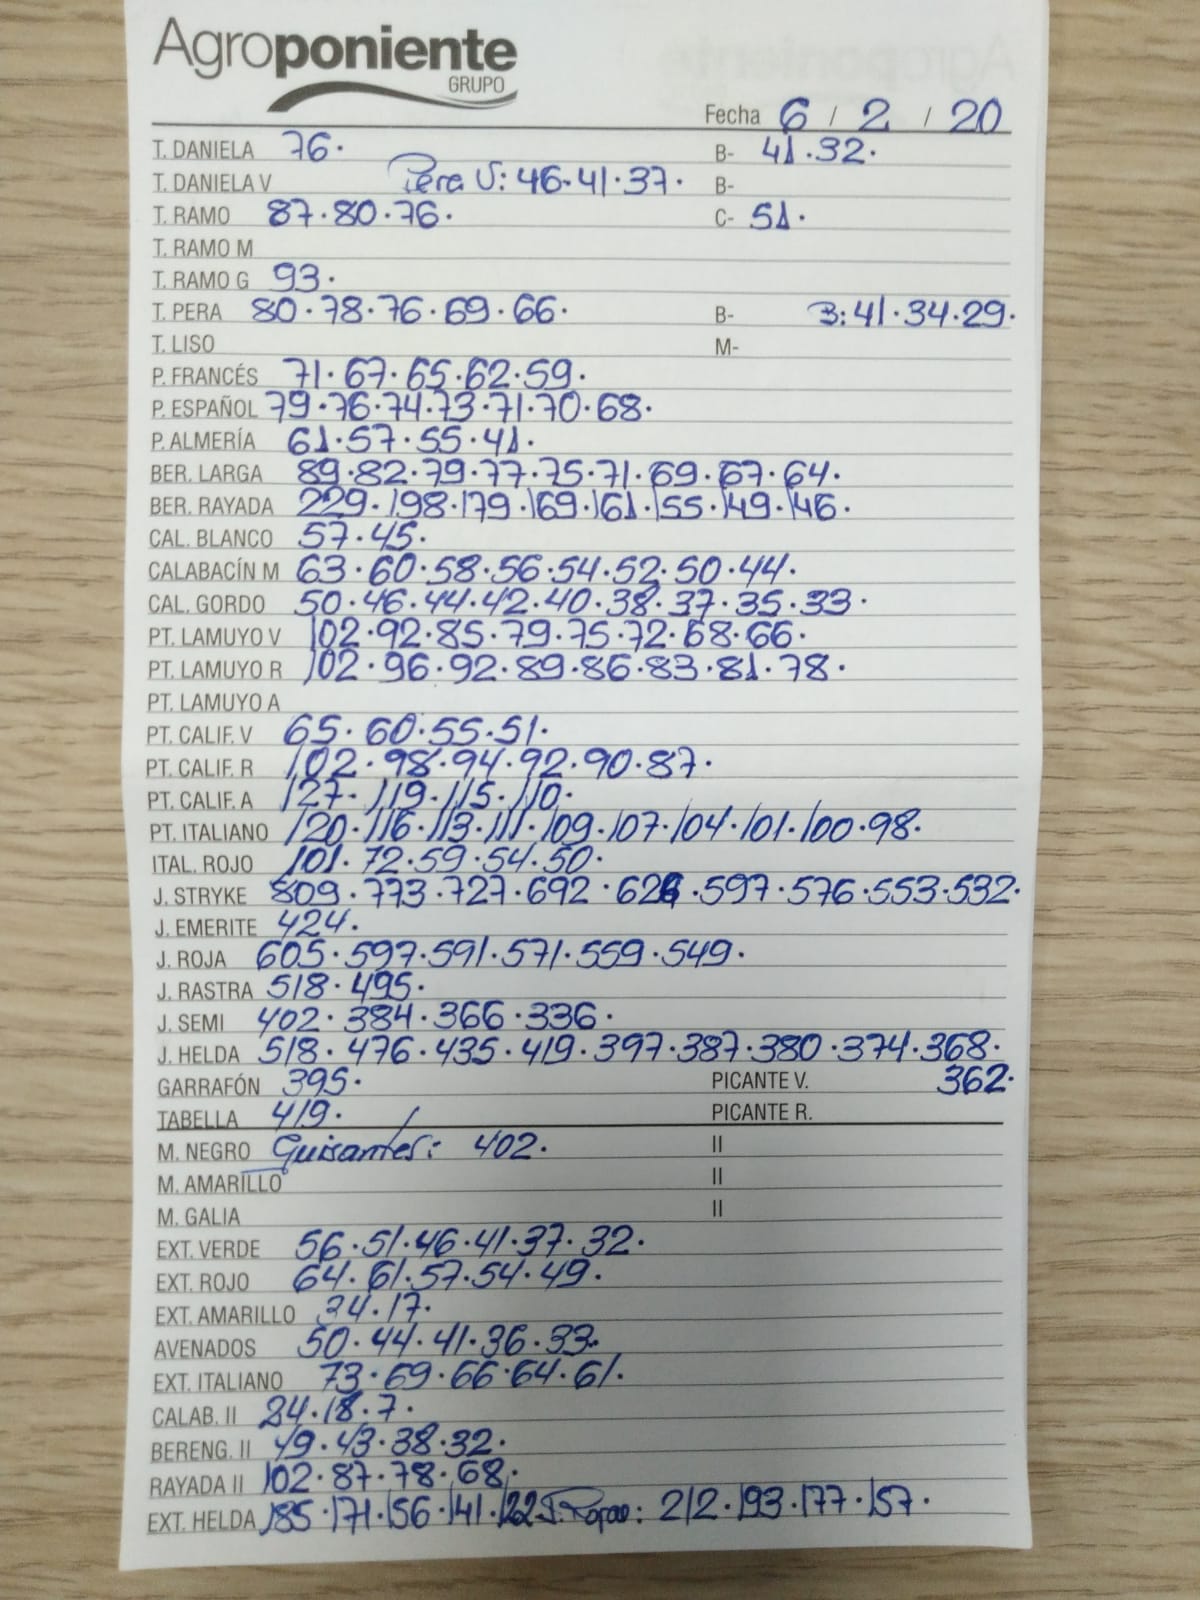 Agroponiente
GRUPO
Fecha 6 / 2 / 20
T. DANIELA 76. B- 41.32.
T. DANIELA V Pera V: 46.41.37. B-
T. RAMO 87.80.76. C- 51.
T. RAMO M
T. RAMO G 93.
T. PERA 80.78.76.69.66. B- 3:41.34.29.
T. LISO M-
P. FRANCÉS 71.67.65.62.59.
P. ESPAÑOL 79.76.74.73.71.70.68.
P. ALMERÍA 61.57.55.41.
BER. LARGA 89.82.79.77.75.71.69.67.64.
BER. RAYADA 229.198.179.169.161.155.149.146.
CAL. BLANCO 57.45.
CALABACÍN M 63.60.58.56.54.52.50.44.
CAL. GORDO 50.46.44.42.40.38.37.35.33.
PT. LAMUYO V 102.92.85.79.75.72.68.66.
PT. LAMUYO R 102.96.92.89.86.83.81.78.
PT. LAMUYO A
PT. CALIF. V 65.60.55.51.
PT. CALIF. R 102.98.94.92.90.87.
PT. CALIF. A 127.119.115.110.
PT. ITALIANO 120.116.113.111.109.107.104.101.100.98.
ITAL. ROJO 101.72.59.54.50.
J. STRYKE 809.773.727.692.626.597.576.553.532.
J. EMERITE 424.
J. ROJA 605.597.591.571.559.549.
J. RASTRA 518.495.
J. SEMI 402.384.366.336.
J. HELDA 518.476.435.419.397.387.380.374.368.
GARRAFÓN 395. PICANTE V. 362.
TABELLA 419. PICANTE R.
M. NEGRO Guisantes: 402. II
M. AMARILLO II
M. GALIA II
EXT. VERDE 56.51.46.41.37.32.
EXT. ROJO 64.61.57.54.49.
EXT. AMARILLO 24.17.
AVENADOS 50.44.41.36.33.
EXT. ITALIANO 73.69.66.64.61.
CALAB. II 24.18.7.
BERENG. II 49.43.38.32.
RAYADA II 102.87.78.68.
EXT. HELDA 185.171.156.141.122 212.193.177.157.